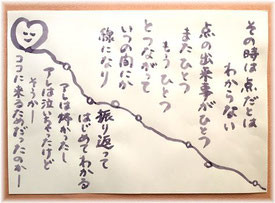 その時は点だとは
わからない
点の出来事がひとつ
またひとつ
もうひとつ
とつながって
いつの間にか
線になり
振り返って
はじめてわかる
アレは嫌だったし
アレは泣いちゃったけど
そうかー
ココに来るためだったのかー